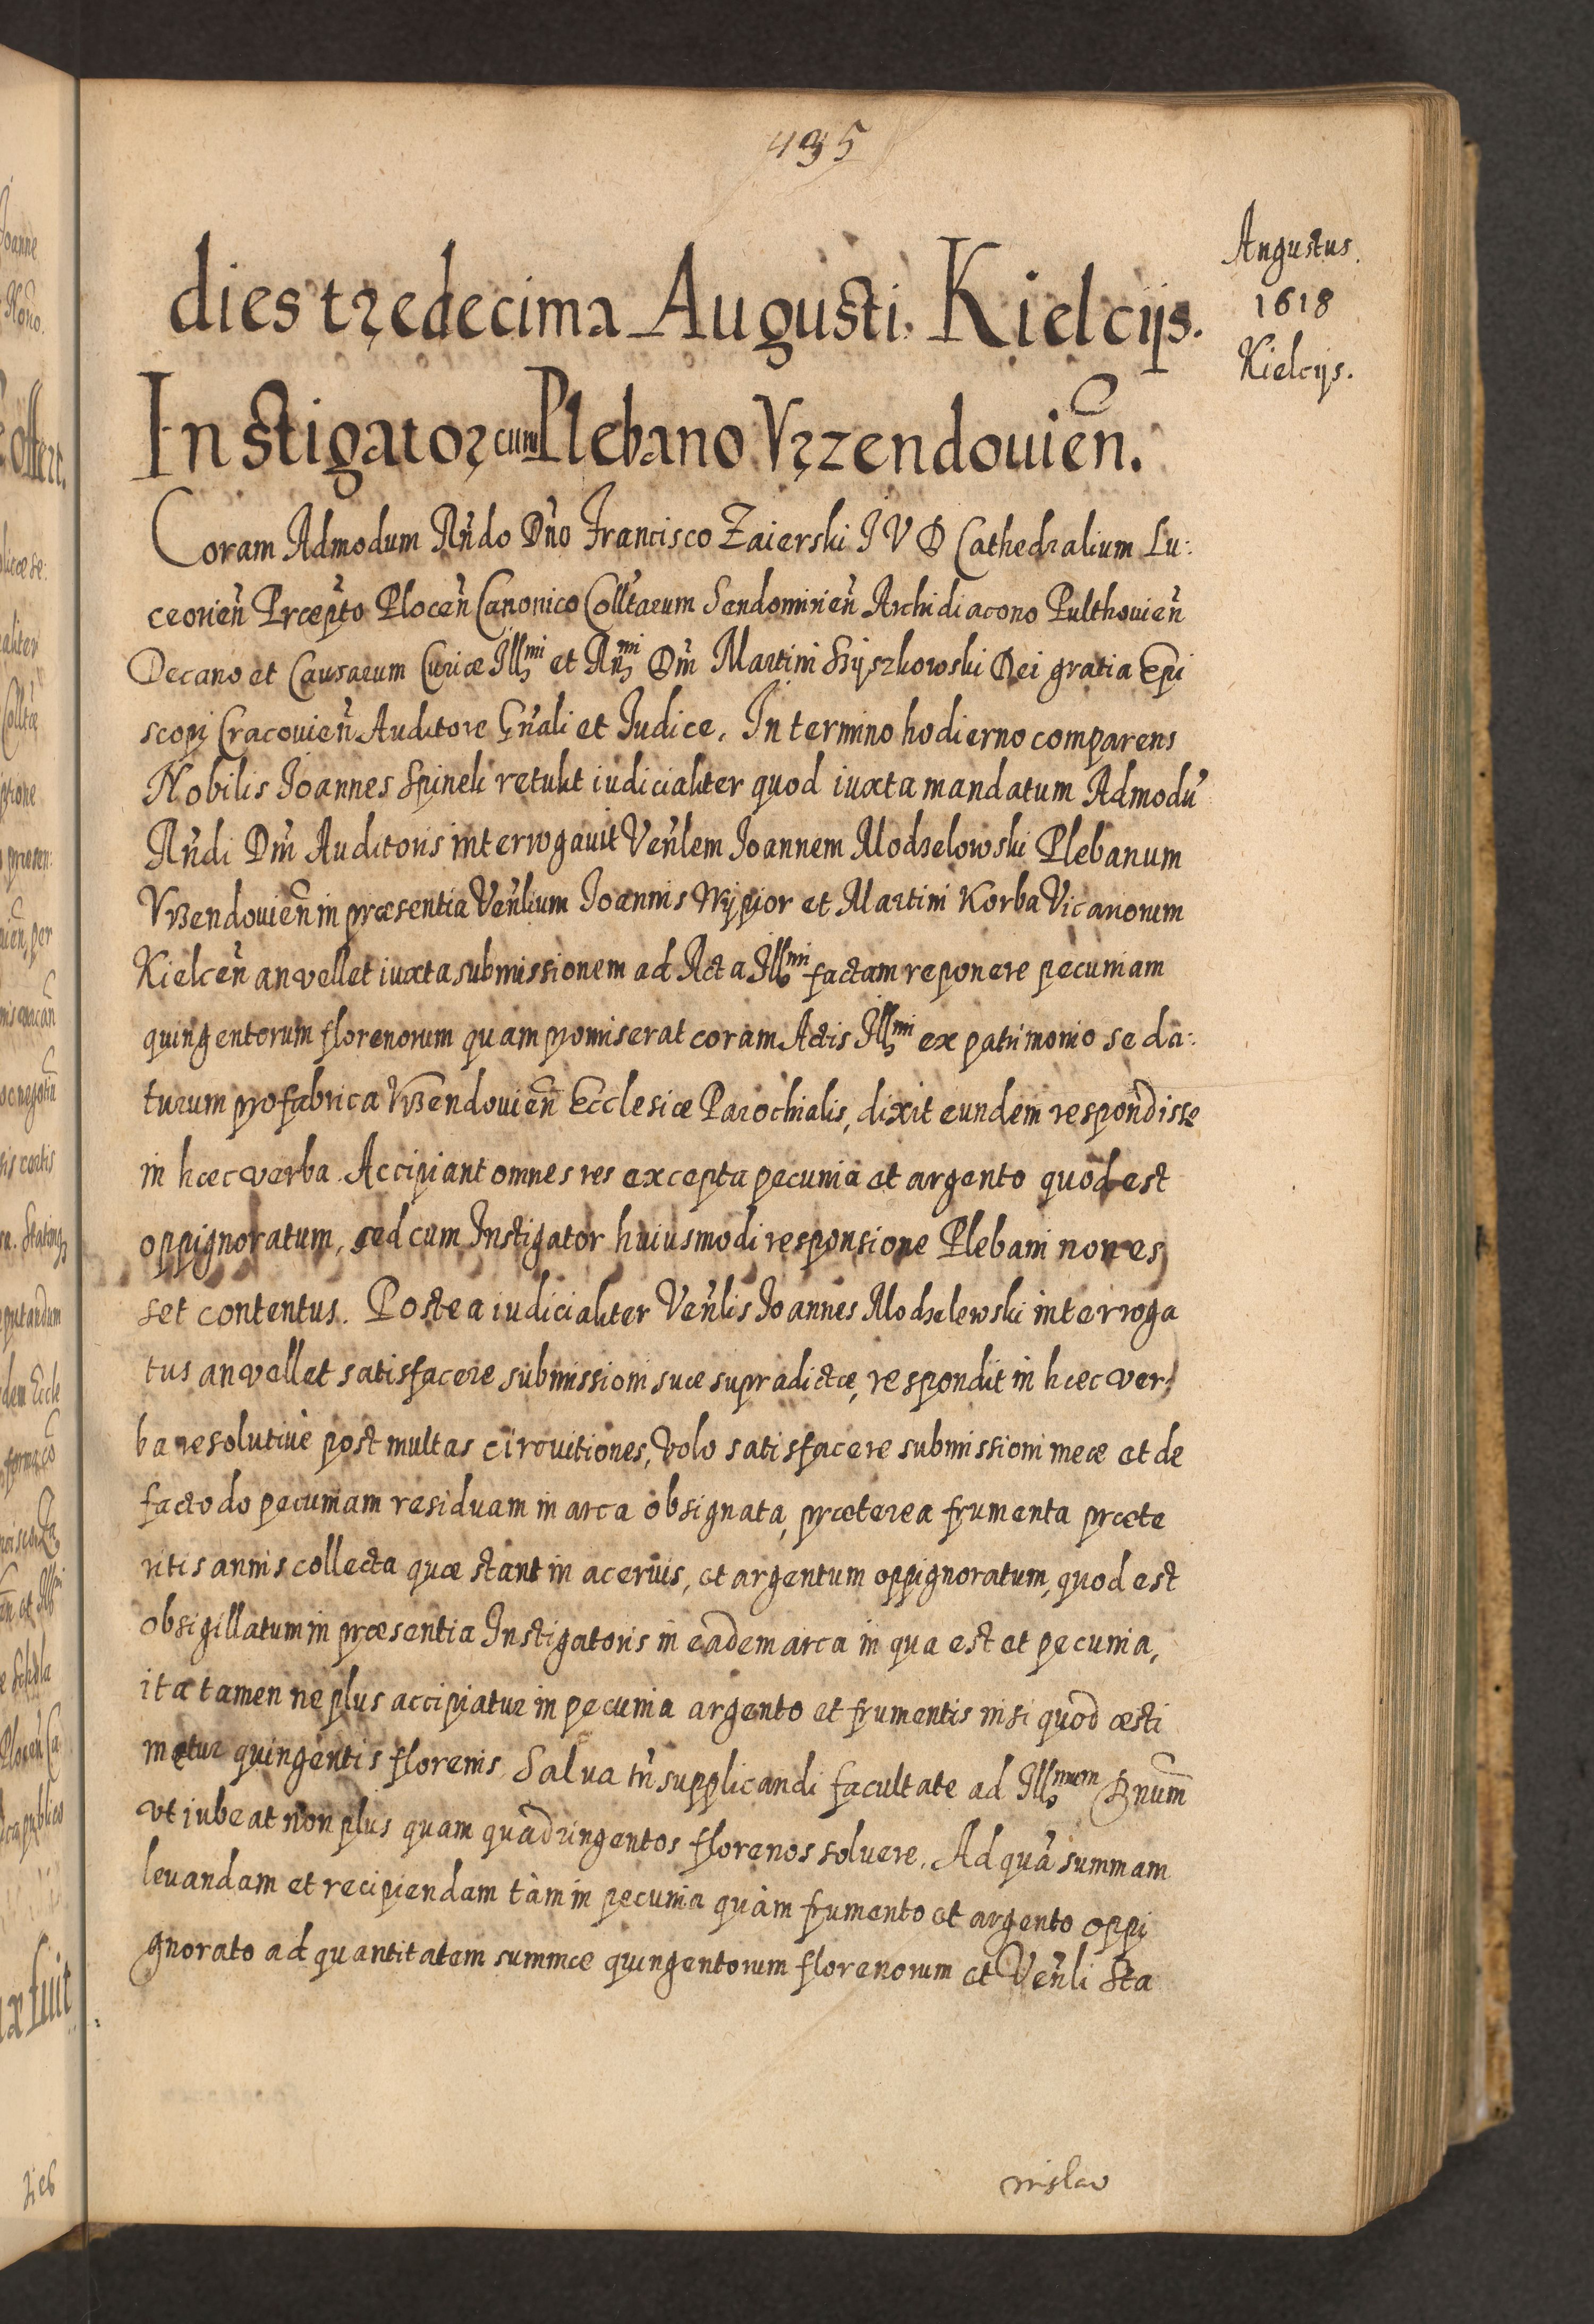 435
Augustus.
1618
Kielcijs.
dies tredecima Augusti. Kielcijs.
Instigator cum Plebano Vrzendouien̄.
Coram Admodum Rńdo Dńo Francisco Zaierski I V D Cathedralium Lu:
ceorień Præpto Ploceń Canonico Colltarum Sandomirień Archidiacono Pulthouień
Decano et Causarum Curiæ Illmi et Rńmi Dńi Martini Szyszkowski Dei gratia Epi
scopi Cracouień Auditore Gńali et Iudice. In termino hodierno comparens
Nobilis Ioannes Spinek retulit iudicialiter quod iuxta mandatum Admodu
Rńdi Dńi Auditoris interrogauit Veńlem Ioannem Modzelowski Plebanum
Vrzendouień in præsentia Veńlium Ioannis Wypior et Martini Korba Vicariorum
Kielceń an vellet iuxta submissionem ad Acta Illmi factam reponere pecuniam
quingentorum florenorum quam promiserat coram Actis Illmi ex patrimonio se da:
turum pro fabrica Vrzendouień Ecclesiæ Parochialis, dixit eundem respondisse
in hæc verba. Accipiant omnes res excepta pecunia et argento quod est
oppignoratum, sed cum Instigator huiusmodi responsione Plebani non es
set contentus. Postea iudicialiter Veńlis Ioannes Modzelewski interroga
tus an vellet satisfacere submissioni suæ supradictæ, respondit in hæc ver
ba resolutiuè post multas circuitiones, Volo satisfacere submissioni meæ et de
facto do pecuniam residuam in arca obsignata, præterea frumenta præte
ritis annis collecta quæ stant in aceruis, et argentum oppignoratum, quod est
obsigillatum in præsentia Instigatoris in eadem arca in qua est et pecunia,
ita tamen ne plus accipiatur in pecunia argento et frumentis nisi quod æsti
metur quingentis florenis, Salua tń supplicandi facultate ad Illmum Dnum
vt iubeat non plus quam quadringentos florenos soluere. Ad quā summam
leuandam et recipiendam tàm in pecunia quàm frumento et argento oppi
gnorato ad quantitatem summæ quingentorum florenorum et Veńli Sta
nislao